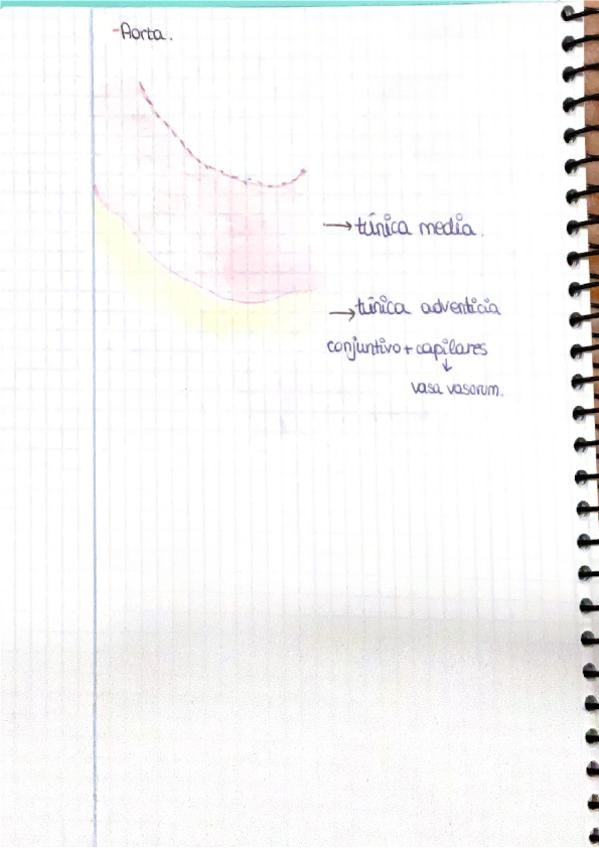 -Aorta.
→ túnica media.
→ túnica adventicia
conjuntivo + capilares
↓
vasa vasorum.